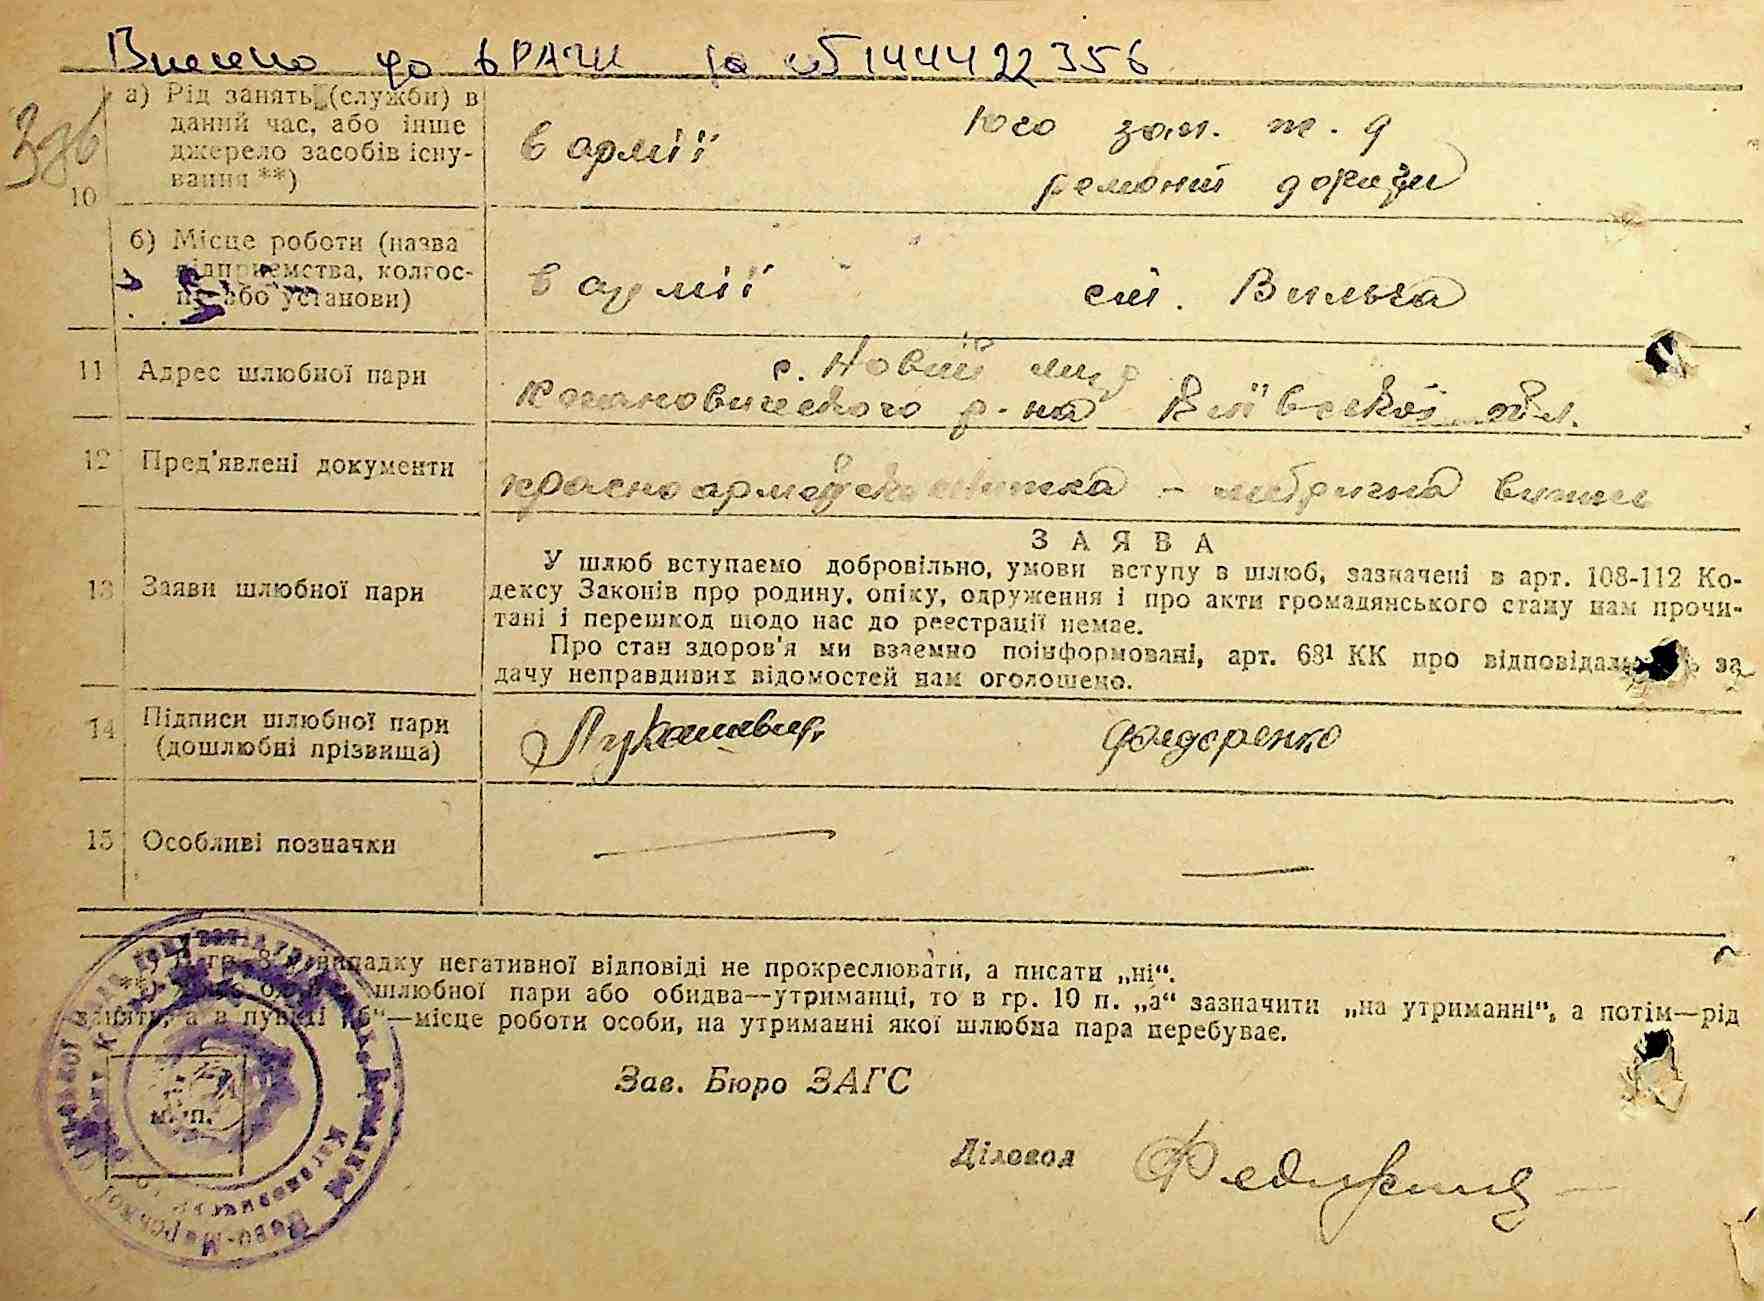 Внесено до ВРАЦС за № 1444422356
336
10
а) Рід занять (служби) в
даний час, або інше
джерело засобів існу-
вання **)
в армії
Юго зап. ж. д
ремонт дороги
б) Місце роботи (назва
підприємства, колгос-
пу або установи)
в армії
ст. Вильча
11
Адрес шлюбної пари
с. Новий мир
Кагановичского р-на Київскої обл.
12
Пред'явлені документи
красноармейска книжка - метрична випис
13
Заяви шлюбної пари
ЗАЯВА
У шлюб вступаємо добровільно, умови вступу в шлюб, зазначені в арт. 108-112 Ко-
дексу Законів про родину, опіку, одруження і про акти громадянського стану нам прочи-
тані і перешкод щодо нас до реєстрації немає.
Про стан здоров'я ми взаємно поінформовані, арт. 68¹ КК про відповідаль за
дачу неправдивих відомостей нам оголошено.
14
Підписи шлюбної пари
(дошлюбні прізвища)
Лукашевич
Фандеренко
15
Особливі позначки
випадку негативної відповіді не прокреслювати, а писати „ні“.
шлюбної пари або обидва—утриманці, то в гр. 10 п. „а“ зазначити „на утриманні“, а потім—рід
занять, а в пункті „б“—місце роботи особи, на утриманні якої шлюбна пара перебуває.
Зав. Бюро ЗАГС
м. п.
Діловод